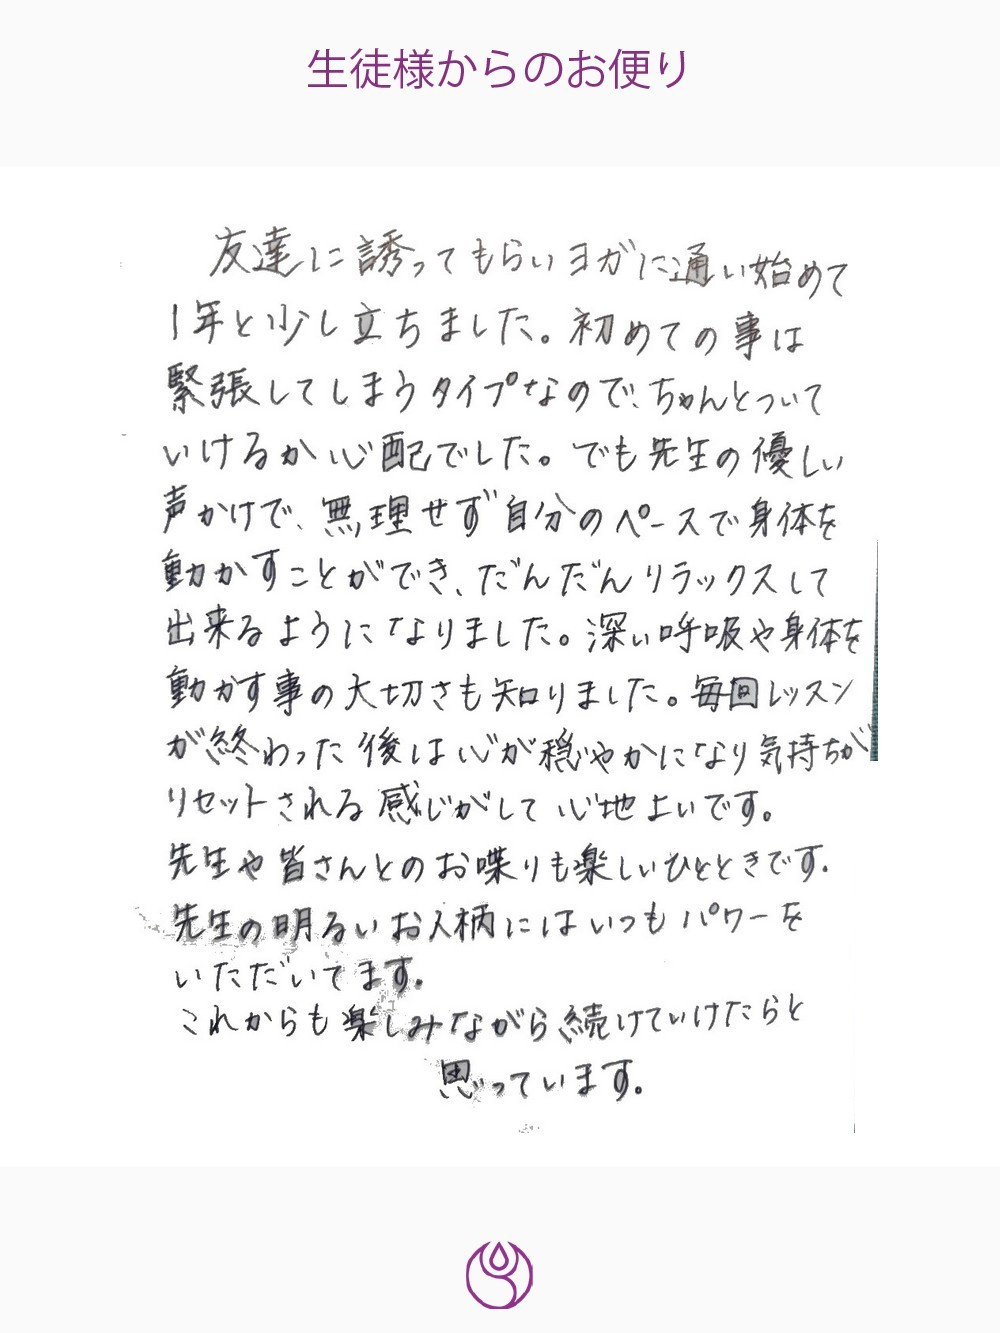 生徒様からのお便り
友達に誘ってもらいヨガに通い始めて
1年と少し立ちました。初めての事は
緊張してしまうタイプなので、ちゃんとついて
いけるか心配でした。でも先生の優しい
声かけで、無理せず自分のペースで身体を
動かすことができ、だんだんリラックスして
出来るようになりました。深い呼吸や身体を
動かす事の大切さも知りました。毎回レッスン
が終わった後は心が穏やかになり気持ちが
リセットされる感じがして心地よいです。
先生や皆さんとのお喋りも楽しいひとときです.
先生の明るいお人柄にはいつもパワーを
いただいてます.
これからも楽しみながら続けていけたらと
思っています。